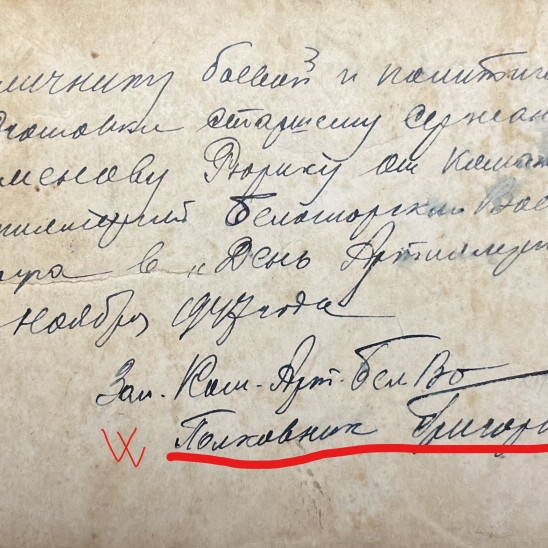 личнику боевой и политиче
дготовки старшему сержан
менову Рюрику от Коман
тиллерией Беломорского Вое
руга в „День Артиллери
ноября 1947 года
Зам. Ком. Арт. БелВо
Полковник Григорь